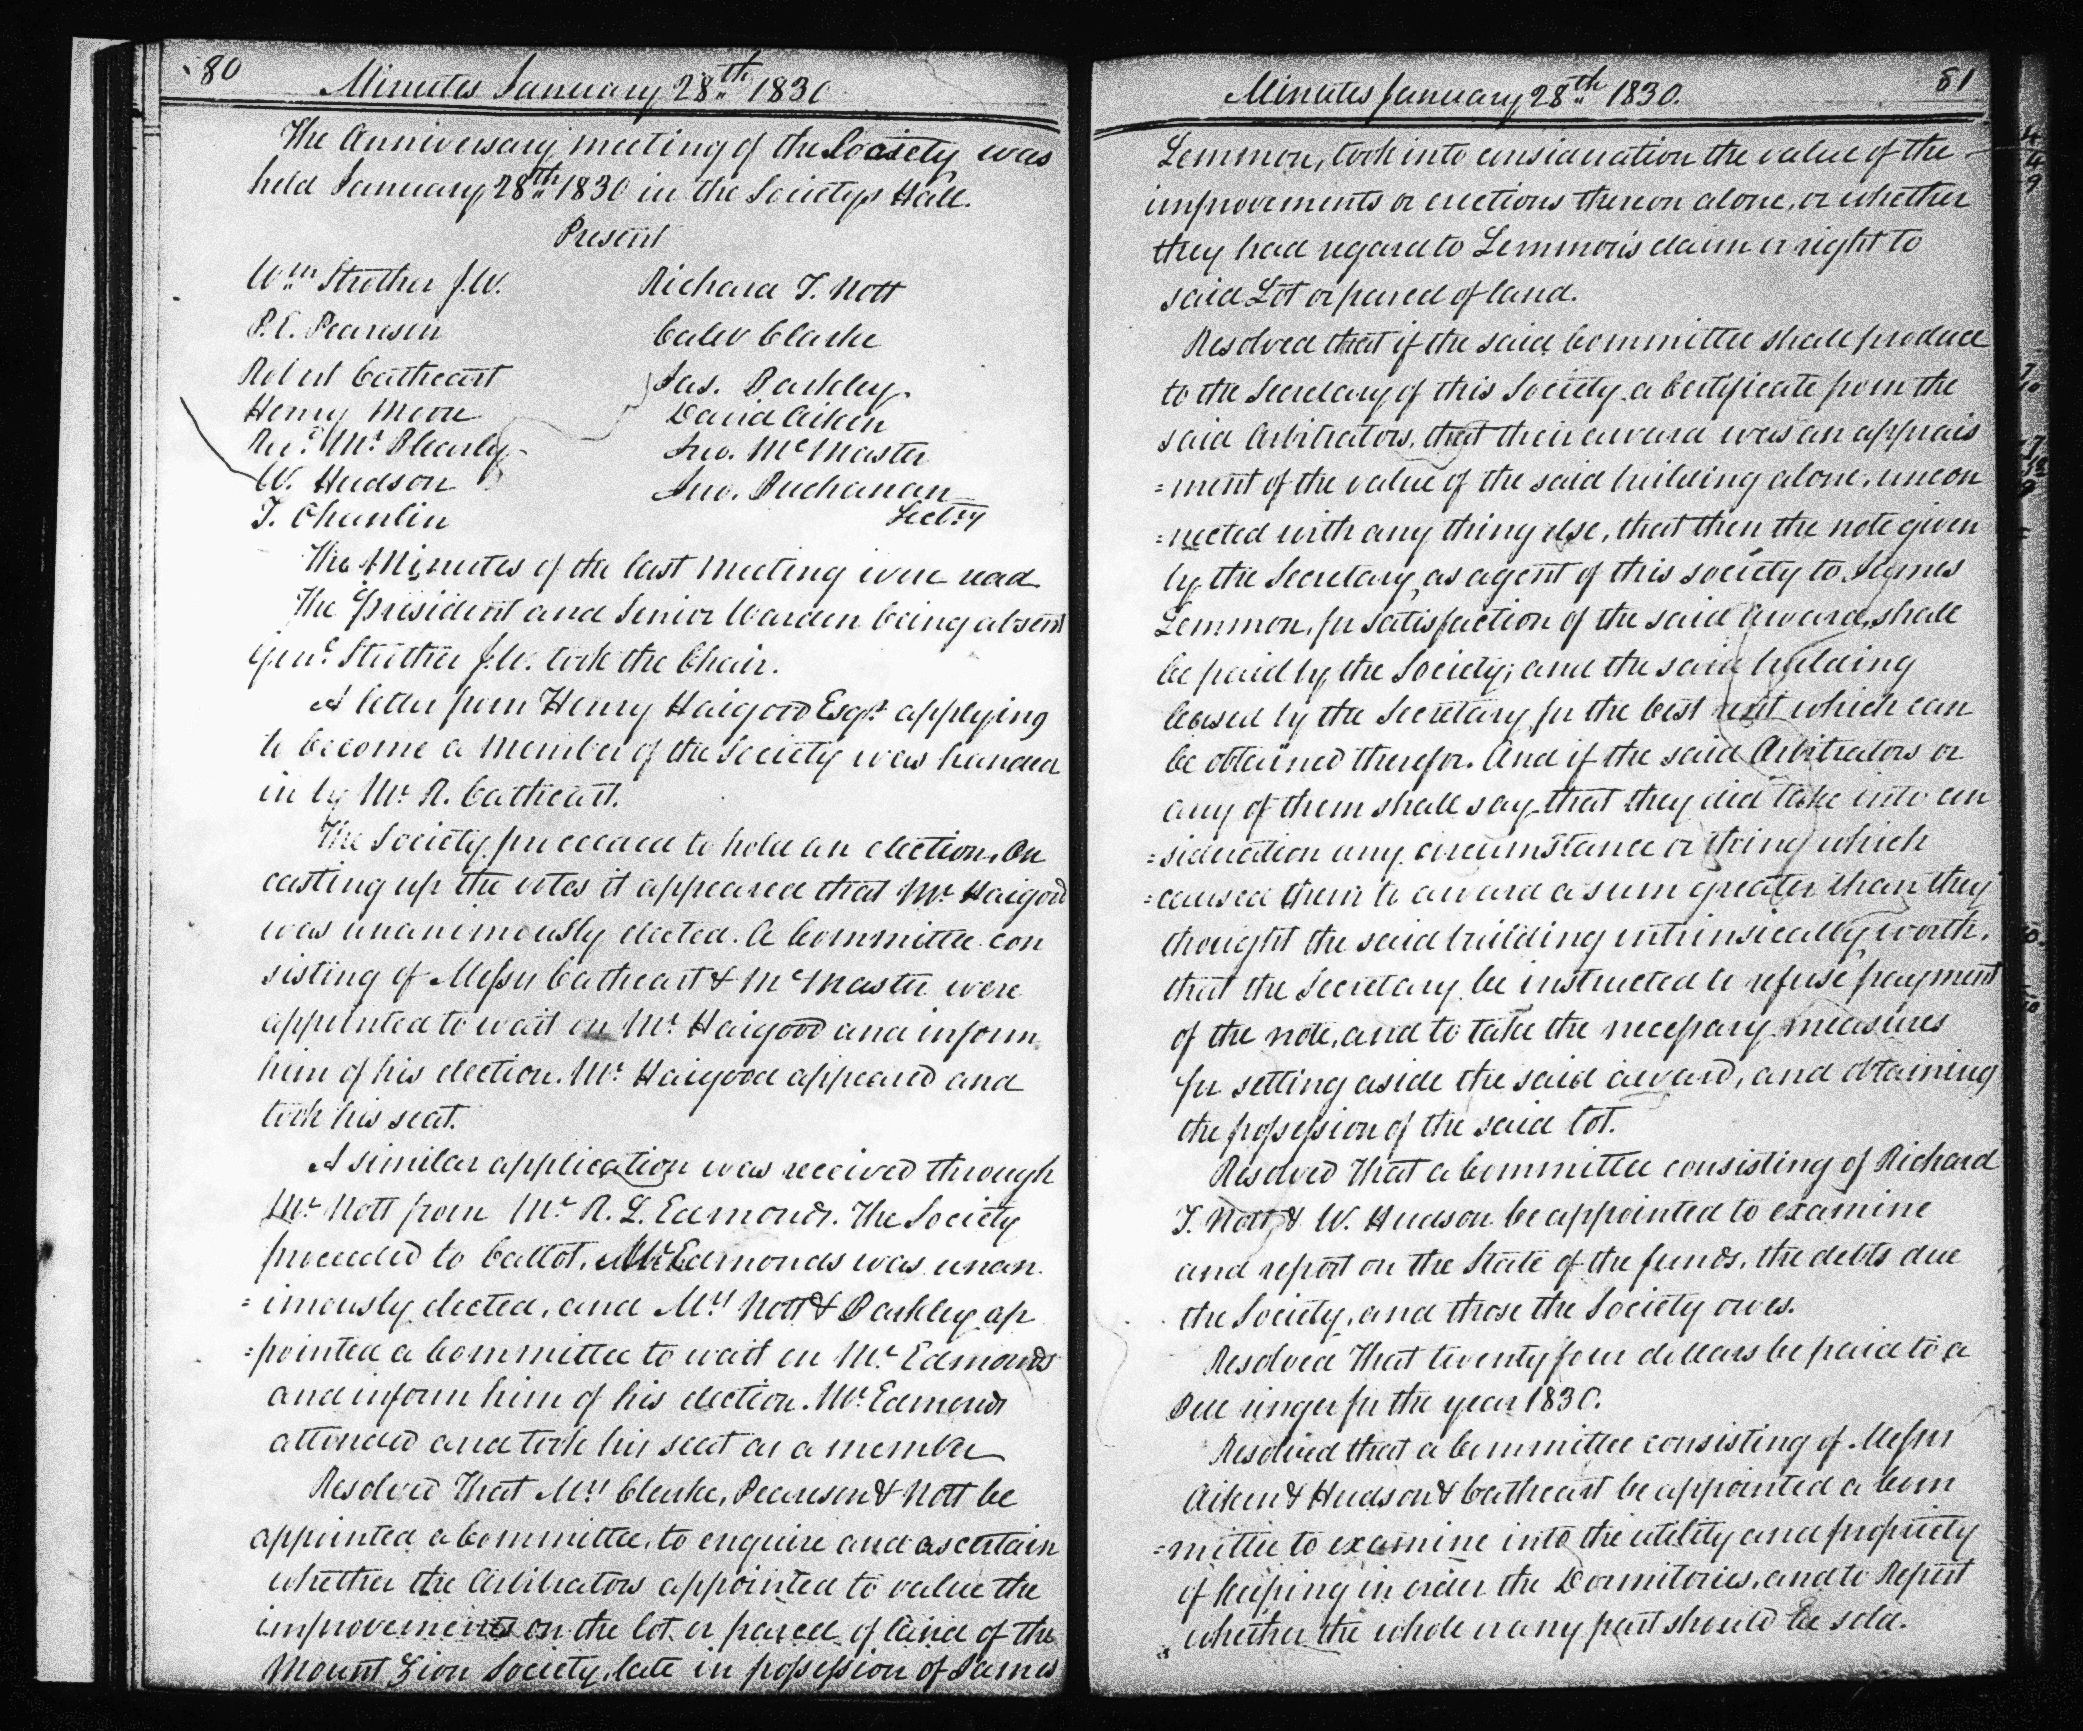 80
Minutes January 28th 1830
The Anniversary meeting of the Society was
held January 28th 1830 in the Societys Hall.
Present
Wm Strother J.W.
P.E. Pearson
Robert Cathcart
Henry Moore
Revd Mr
W. Hudson
T. Chanlin
Richard T. Nott
Caleb Clarke
Jas. Barkley
David Aiken
Jno. McMaster
Jno. Buchanan
Secty
The Minutes of the last Meeting were read
The President and Senior Warden being absent
Genl Strother J.W. took the Chair.
A letter from Henry Haigood Esqr. applying
to become a Member of the Society was handed
in by Mr R. Cathcart.
The Society proceeded to hold an election. On
casting up the votes it appeared that Mr Haigood
was unanimously elected. A Committee con
sisting of Messrs Cathcart & McMaster were
appointed to wait on Mr. Haigood and inform
him of his election. Mr. Haigood appeared and
took his seat.
A similar application was received through
Mr Nott from Mr R. L. Edmonds. The Society
proceeded to ballot. Mr Edmonds was unan
=imously elected, and Mrs Nott & Barkley ap
=pointed a Committee to wait on Mr. Edmonds
and inform him of his election. Mr. Edmonds
attended and took his seat as a member
Resolved That Mrs Clarke, Pearson & Nott be
appointed a Committee, to enquire and ascertain
whether the Arbitrators appointed to value the
improvements on the lot or parcel of land of the
Mount Zion Society, late in possession of James
Minutes January 28th 1830.
81
Lemmon, took into consideration the value of the
improvements or erections thereon alone, or whether
they had regard to Lemmon's claim or right to
said Lot or parcel of land.
Resolved that if the said Committee shall produce
to the Secretary of this Society a Certificate from the
said Arbitrators, that their award was an apprais
=ment of the value of the said building alone, uncon
=nected with any thing else, that then the note given
by the Secretary, as agent of this society to James
Lemmon, for satisfaction of the said Award, shall
be paid by the Society; and the said building
leased by the Secretary for the best rent which can
be obtained therefor. And if the said Arbitrators or
any of them shall say that they did take into con
=sideration any circumstance or thing which
=caused them to award a sum greater than they
thought the said building intrinsically worth,
that the Secretary be instructed to refuse payment
of the note, and to take the necessary measures
for setting aside the said award, and obtaining
the possession of the said lot.
Resolved That a Committee consisting of Richard
T. Nott & W. Hudson be appointed to examine
and report on the State of the funds, the debts due
the Society, and those the Society owes.
Resolved That twenty four dollars be paid to a
Bell ringer for the year 1830.
Resolved that a Committee consisting of Messrs
Aiken & Hudson & Cathcart be appointed a Com
=mittee to examine into the utility and propriety
of keeping in order the Dormitories, and to Report
whether the whole or any part should be sold.